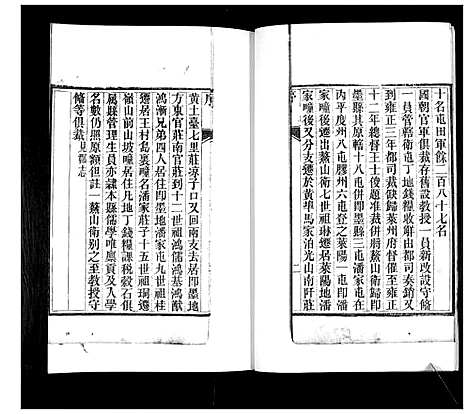 十名屯田軍餘二百八十七名
國朝官軍俱裁存舊設教授一員新改設守備
一員管轄衛屯丁地錢糧收解由都司奏銷又
到雍正三年都司裁併萊州府督催至雍正
十二年總督王士俊題准裁併將鰲山衛歸印
墨其原轄十八屯併即墨縣三屯潘家屯在
內平度州八屯膠州六屯登之萊陽一屯即潘
家疃後遷出鰲山衛七世祖琳遷居萊陽地潘
家疃後又分支遷於黃埠馬家泊光山南阡莊
序
黃土臺七里莊淳子口又回兩支去居即墨地
方東官莊南官莊到十二世祖鴻儒鴻基鴻猷
鴻漸兄弟四人居住即墨地潘家屯九世祖桂
遷居王村島裏疃名潘家莊子十五世祖珦遷
嶺山前山坡疃居住凡地丁錢糧課税穀石俱
属縣管理生員亦隷本縣儒學唯廪貢及入學
名數仍照原額但註一鰲山衛別之至教授守
備等俱裁見郡志